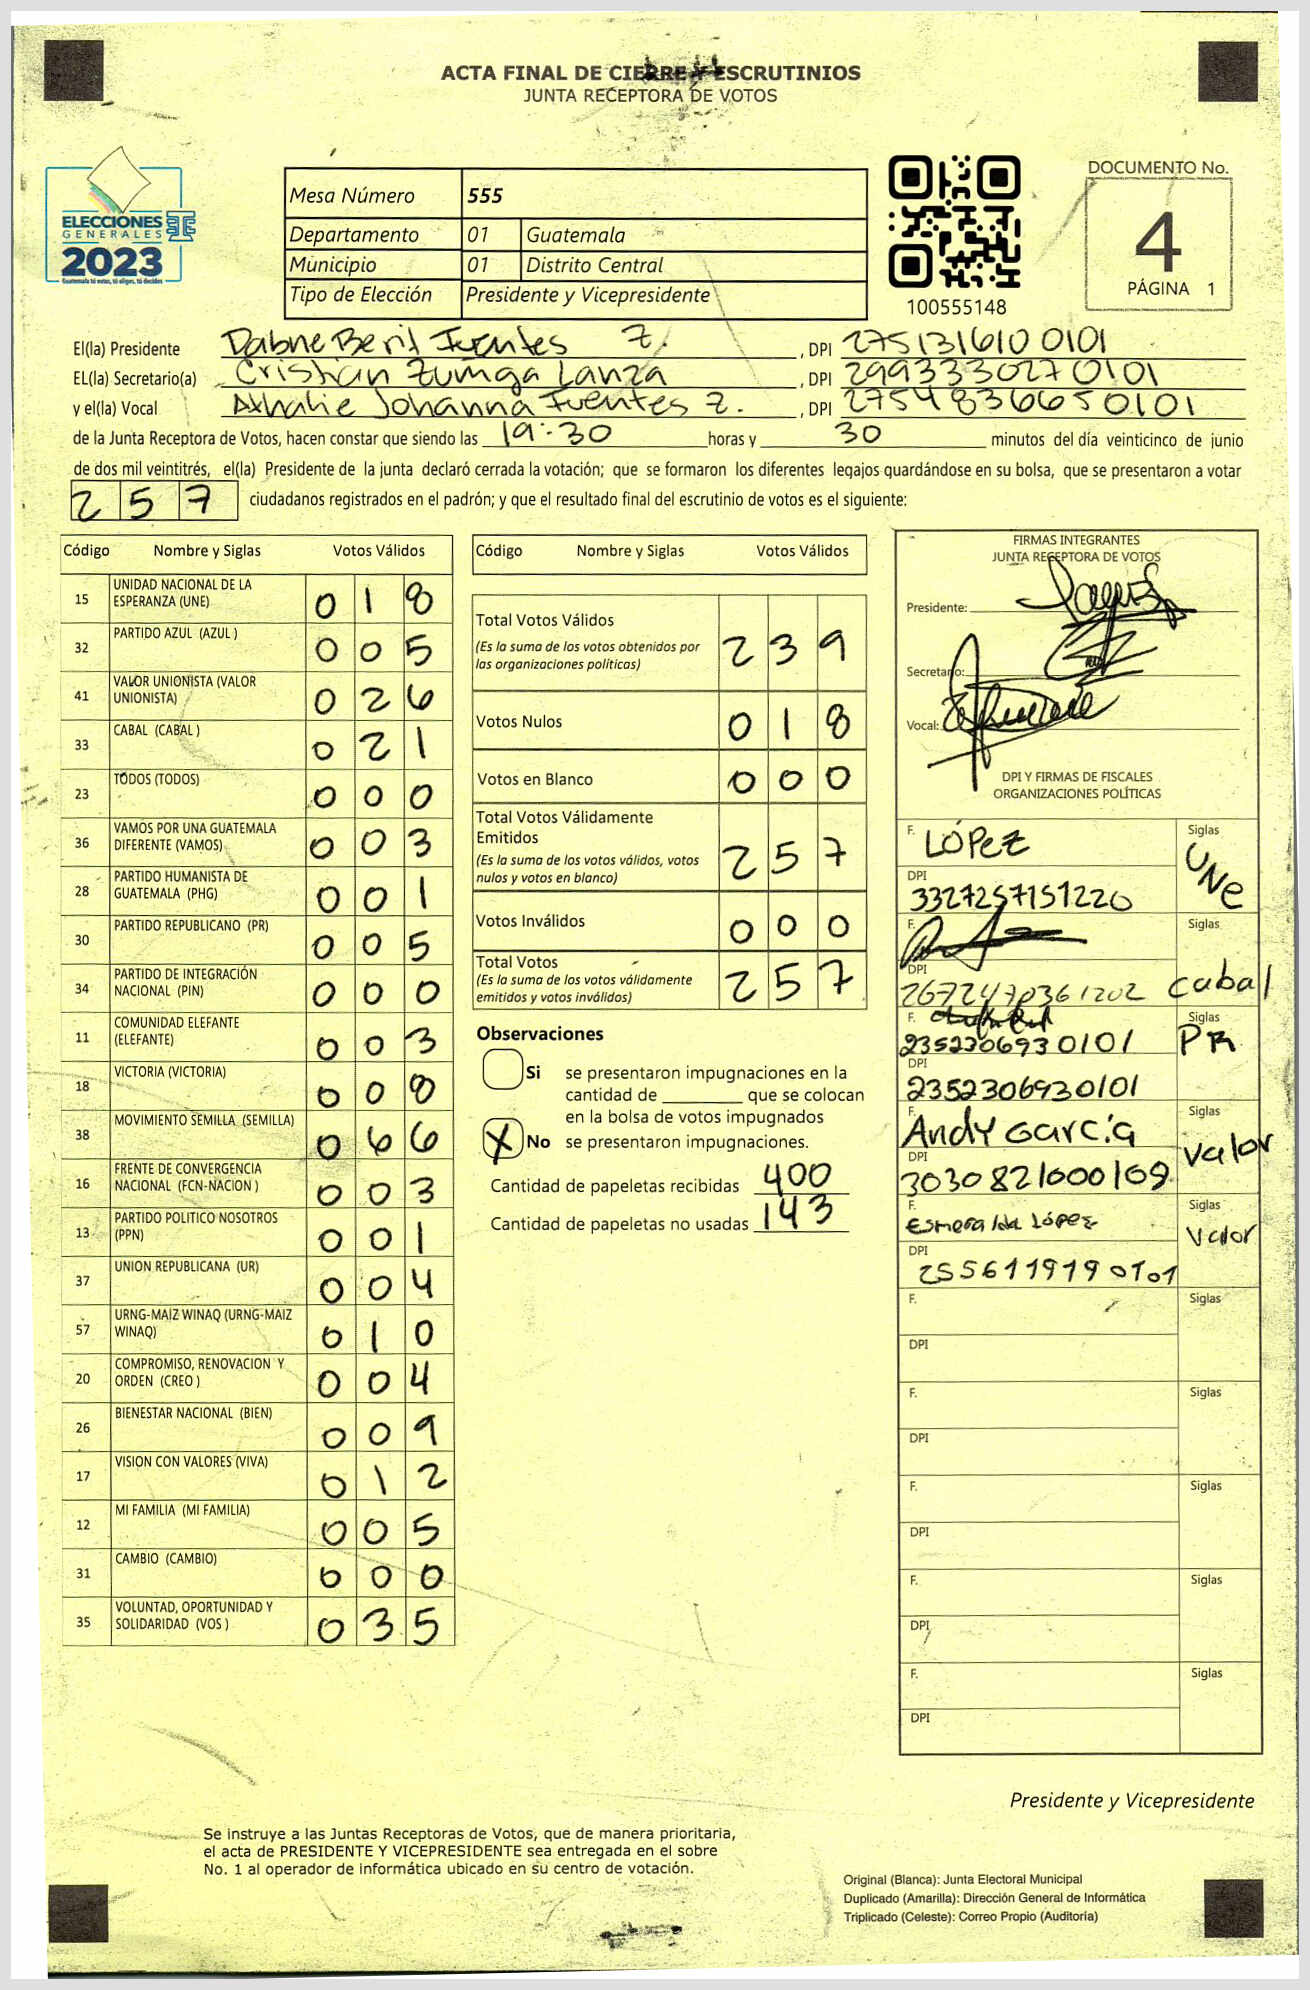 ACTA FINAL DE CIERRE Y ESCRUTINIOS
JUNTA RECEPTORA DE VOTOS
ELECCIONES
GENERALES
2023
Guatemala tú eres, tú eliges, tú decides
Mesa Número 555
Departamento 01 Guatemala
Municipio 01 Distrito Central
Tipo de Elección Presidente y Vicepresidente
100555148
DOCUMENTO No.
4
PÁGINA 1
El(la) Presidente Dabne Berit Fuentes Z. , DPI 2751316100101
EL(la) Secretario(a) Cristian Zuñiga Lanza , DPI 2993330270101
y el(la) Vocal Athalie Johanna Fuentes Z. , DPI 2754836650101
de la Junta Receptora de Votos, hacen constar que siendo las 19:30 horas y 30 minutos del día veinticinco de junio
de dos mil veintitrés, el(la) Presidente de la junta declaró cerrada la votación; que se formaron los diferentes legajos guardándose en su bolsa, que se presentaron a votar
257 ciudadanos registrados en el padrón; y que el resultado final del escrutinio de votos es el siguiente:
Código Nombre y Siglas Votos Válidos
15 UNIDAD NACIONAL DE LA ESPERANZA (UNE) 018
32 PARTIDO AZUL (AZUL ) 005
41 VALOR UNIONISTA (VALOR UNIONISTA) 026
33 CABAL (CABAL ) 021
23 TODOS (TODOS) 000
36 VAMOS POR UNA GUATEMALA DIFERENTE (VAMOS) 003
28 PARTIDO HUMANISTA DE GUATEMALA (PHG) 001
30 PARTIDO REPUBLICANO (PR) 005
34 PARTIDO DE INTEGRACIÓN NACIONAL (PIN) 000
11 COMUNIDAD ELEFANTE (ELEFANTE) 003
18 VICTORIA (VICTORIA) 008
38 MOVIMIENTO SEMILLA (SEMILLA) 066
16 FRENTE DE CONVERGENCIA NACIONAL (FCN-NACION ) 003
13 PARTIDO POLITICO NOSOTROS (PPN) 001
37 UNION REPUBLICANA (UR) 004
57 URNG-MAIZ WINAQ (URNG-MAIZ WINAQ) 010
20 COMPROMISO, RENOVACION Y ORDEN (CREO ) 004
26 BIENESTAR NACIONAL (BIEN) 009
17 VISION CON VALORES (VIVA) 012
12 MI FAMILIA (MI FAMILIA) 005
31 CAMBIO (CAMBIO) 000
35 VOLUNTAD, OPORTUNIDAD Y SOLIDARIDAD (VOS ) 035
Código Nombre y Siglas Votos Válidos
Total Votos Válidos 239
(Es la suma de los votos obtenidos por
las organizaciones políticas)
Votos Nulos 018
Votos en Blanco 000
Total Votos Válidamente
Emitidos 257
(Es la suma de los votos válidos, votos
nulos y votos en blanco)
Votos Inválidos 000
Total Votos 257
(Es la suma de los votos válidamente
emitidos y votos inválidos)
Observaciones
Si se presentaron impugnaciones en la
cantidad de ________ que se colocan
en la bolsa de votos impugnados
X No se presentaron impugnaciones.
Cantidad de papeletas recibidas 400
Cantidad de papeletas no usadas 143
FIRMAS INTEGRANTES
JUNTA RECEPTORA DE VOTOS
Presidente:
Secretario:
Vocal:
DPI Y FIRMAS DE FISCALES
ORGANIZACIONES POLÍTICAS
F. LÓPEZ Siglas UNE
DPI 3327257151220
F. Siglas Cabal
DPI 2672470361202
F. 2352306930101 Siglas PR
DPI 2352306930101
F. Andy García Siglas Valor
DPI 3030821000109
F. Esmeralda López Siglas Valor
DPI 2556119190101
F. Siglas
DPI
F. Siglas
DPI
F. Siglas
DPI
F. Siglas
DPI
F. Siglas
DPI
Presidente y Vicepresidente
Se instruye a las Juntas Receptoras de Votos, que de manera prioritaria,
el acta de PRESIDENTE Y VICEPRESIDENTE sea entregada en el sobre
No. 1 al operador de informática ubicado en su centro de votación.
Original (Blanca): Junta Electoral Municipal
Duplicado (Amarilla): Dirección General de Informática
Triplicado (Celeste): Correo Propio (Auditoría)